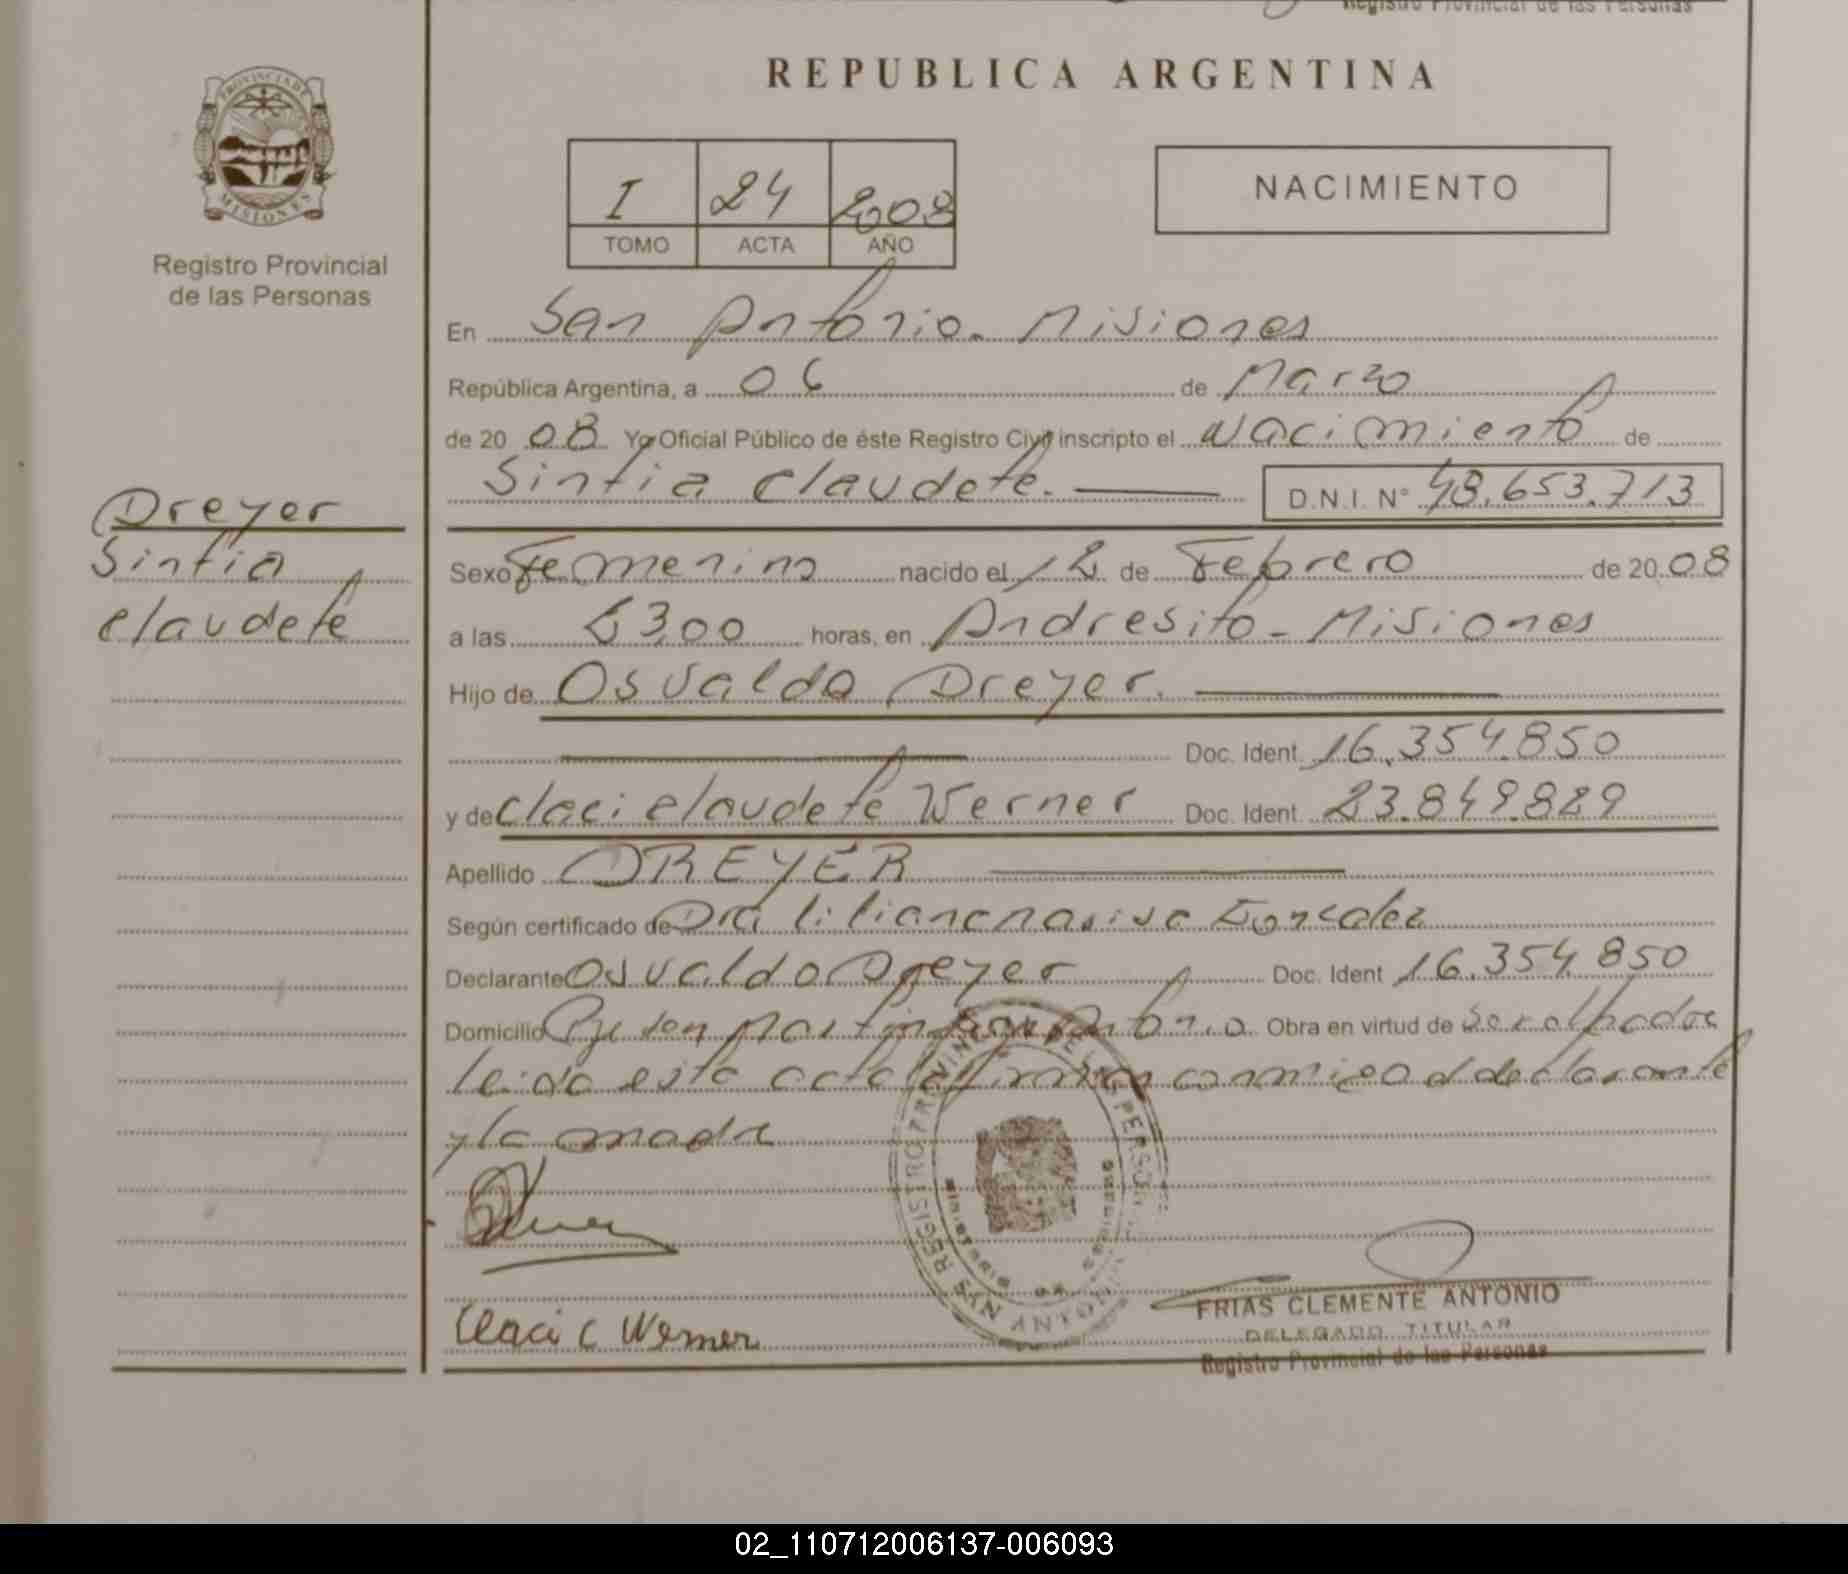 Registro Provincial de las Personas
PROVINCIA DE
MISIONES
Registro Provincial
de las Personas
REPUBLICA ARGENTINA
I 24 2008
TOMO ACTA AÑO
NACIMIENTO
En San Antonio - Misiones
República Argentina, a 06 de Marzo
de 20 08 Yo Oficial Público de éste Registro Civil inscripto el Nacimiento de
Sintia Claudete. D.N.I. N° 48.653.713
Dreyer
Sintia
Claudete
Sexo Femenino nacido el 12 de Febrero de 20 08
a las 23,00 horas, en Andresito - Misiones
Hijo de Osvaldo Dreyer.
Doc. Ident. 16.354.850
y de Claci Claudete Werner Doc. Ident. 23.849.829
Apellido DREYER
Según certificado de Dra Gonzalez
Declarante Osvaldo Dreyer Doc. Ident 16.354.850
Domicilio San Antonio Obra en virtud de
leida esta acta firman conmigo el declarante
y la madre
Claci C Werner
FRIAS CLEMENTE ANTONIO
DELEGADO TITULAR
Registro Provincial de las Personas
02_110712006137-006093